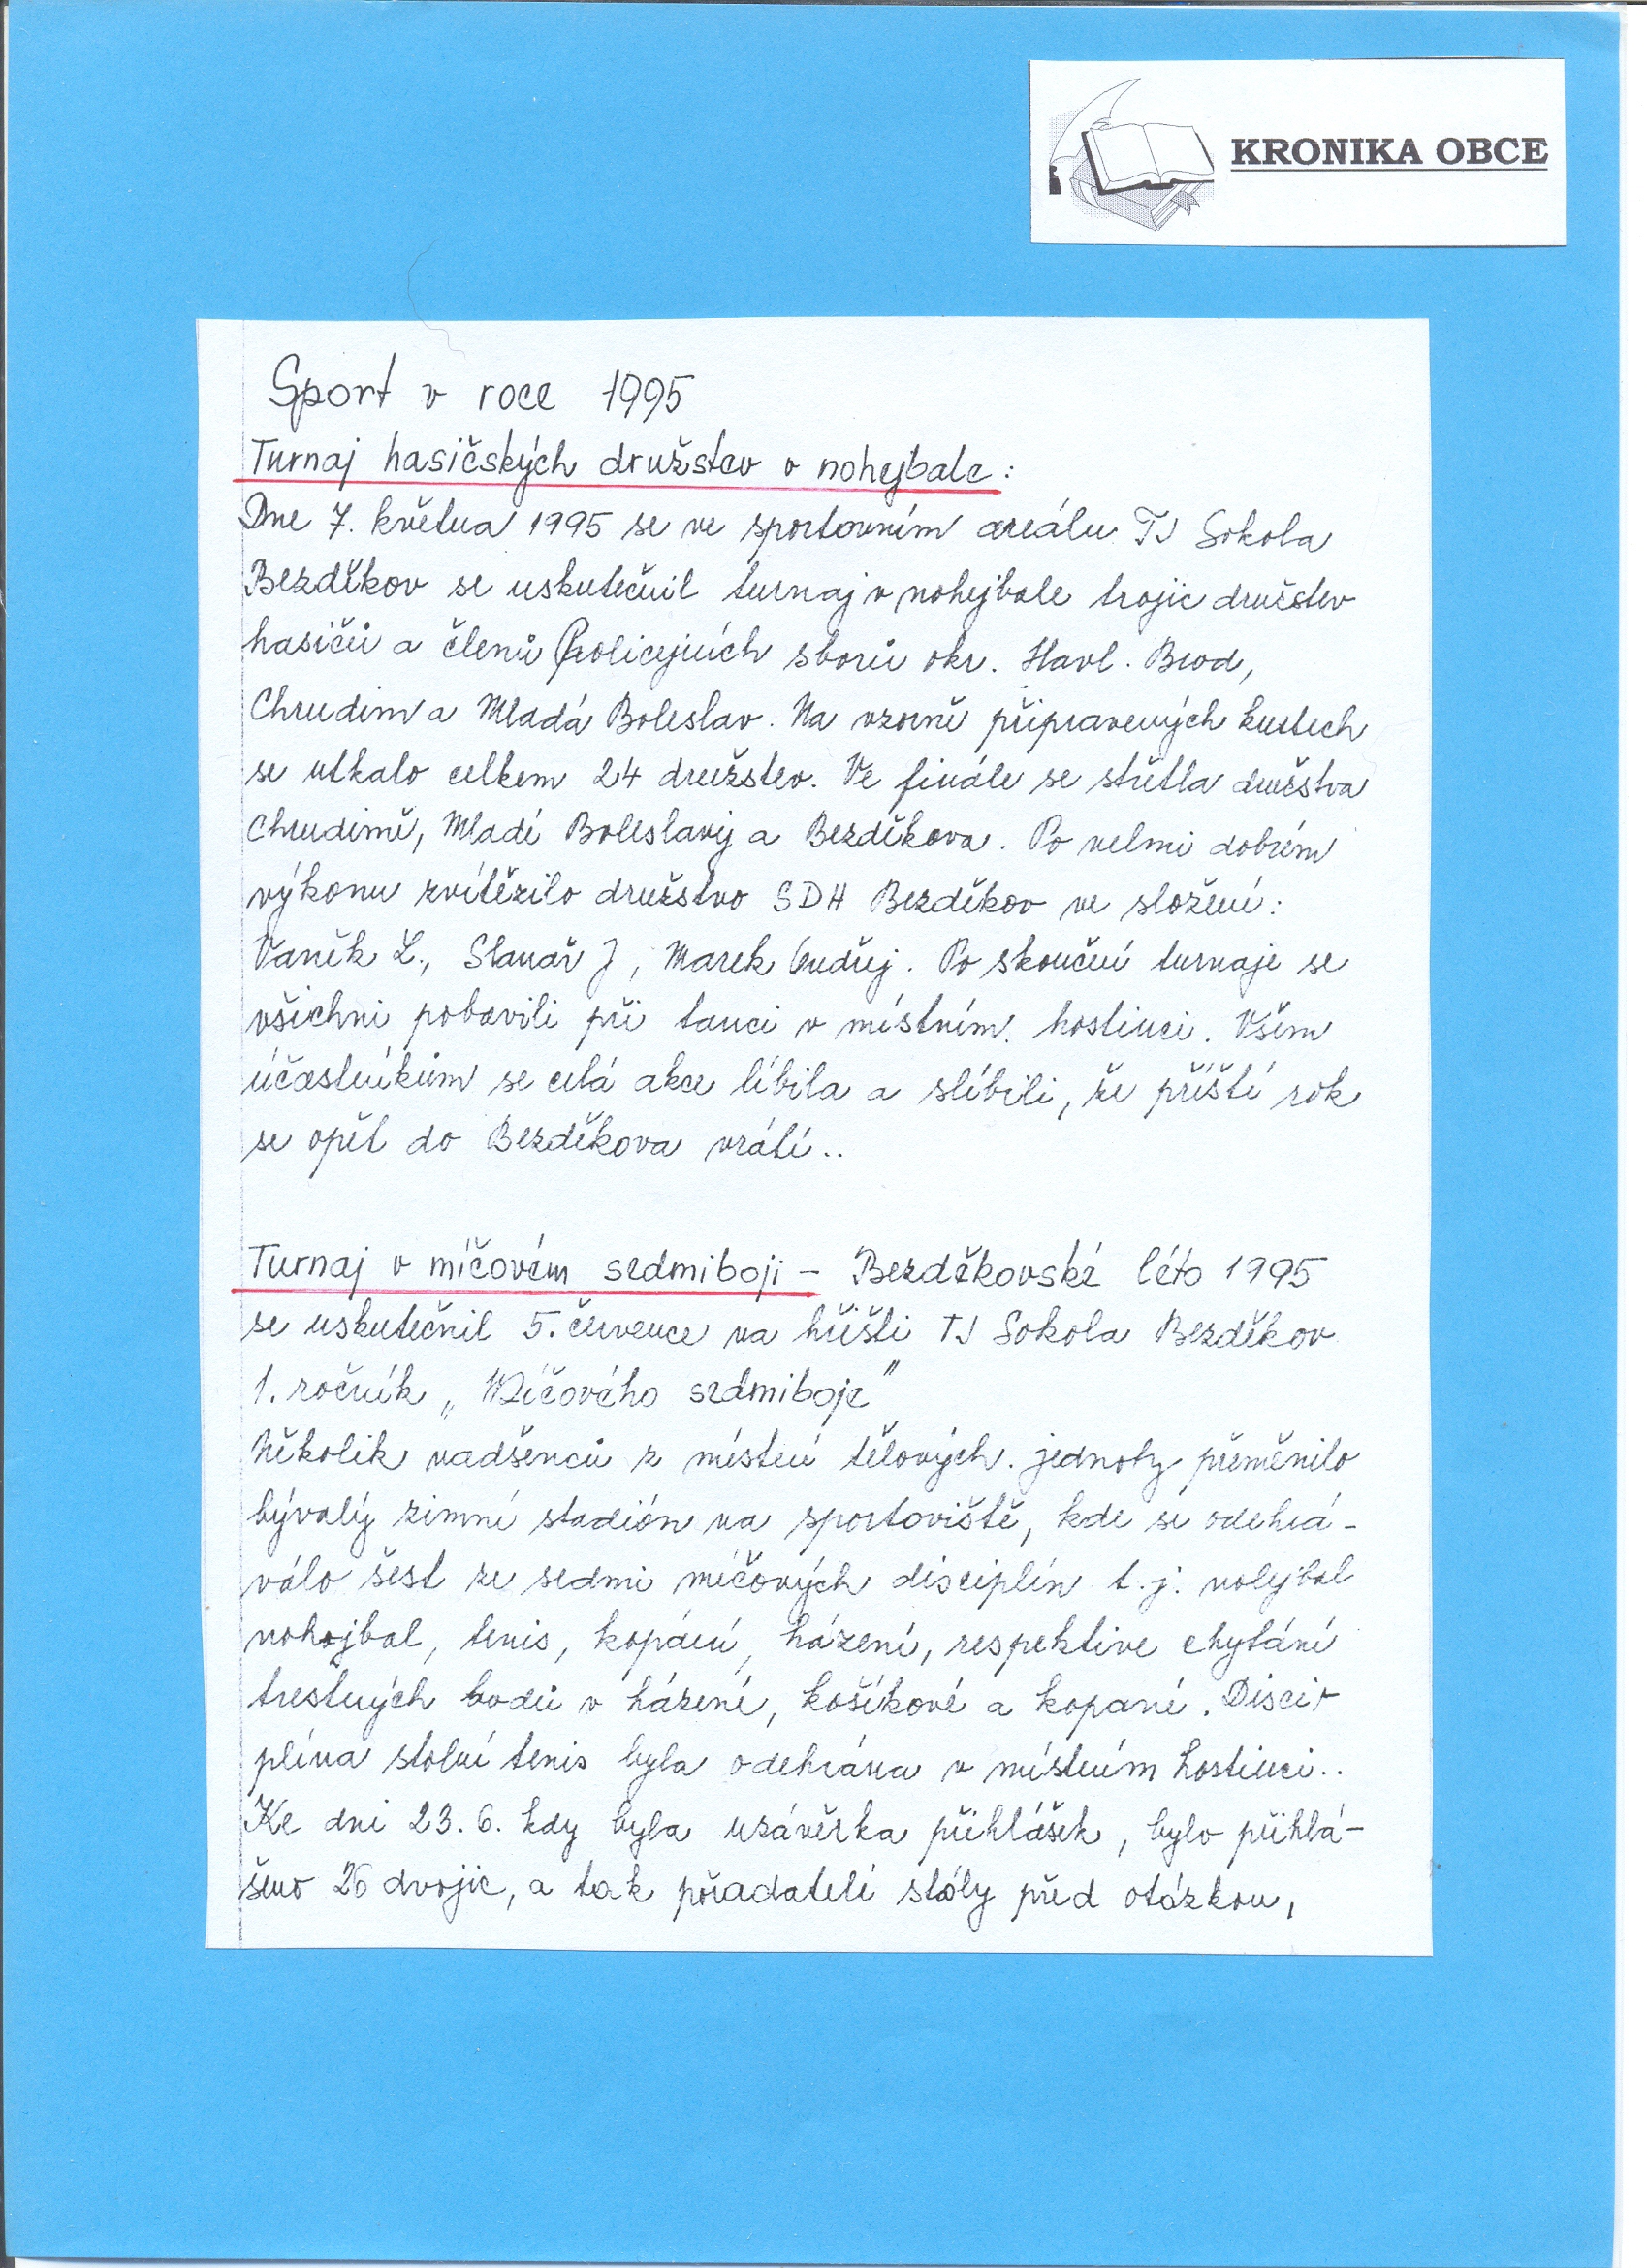 KRONIKA OBCE
Sport v roce 1995
Turnaj hasičských družstev v nohejbale:
Dne 7. května 1995 se ve sportovním areálu TJ Sokola
Bezděkov se uskutečnil turnaj v nohejbale trojic družstev
hasičů a členů Policejních sborů okr. Havl. Brod,
Chrudim a Mladá Boleslav. Na vzorně připravených kurtech
se utkalo celkem 24 družstev. Ve finále se střetla družstva
Chrudimě, Mladé Boleslavy a Bezděkova. Po velmi dobrém
výkonu zvítězilo družstvo SDH Bezděkov ve složení:
Vaněk L., Slanař J, Marek Ondřej. Po skončení turnaje se
všichni pobavili při tanci v místním. hostinci. Všem
účastníkům se celá akce líbila a slíbili, že příští rok
se opět do Bezděkova vrátí..
Turnaj v míčovém sedmiboji – Bezděkovské léto 1995
se uskutečnil 5. července na hřišti TJ Sokola Bezděkov
1. ročník „Míčového sedmiboje"
Několik nadšenců z místní tělových. jednoty přeměnilo
bývalý zimní stadión na sportoviště, kde se odehrá-
válo šest ze sedmi míčových disciplín t.j. volejbal
nohejbal, tenis, kopání, házení, respektive chytání
trestných bodů v házené, košíkové a kopané. Discip-
plína stolní tenis byla odehrána v místním hostinci..
Ke dni 23.6. kdy byla uzávěrka přihlášek, bylo přihlá-
šeno 26 dvojic, a tak pořadatelé stály před otázkou,